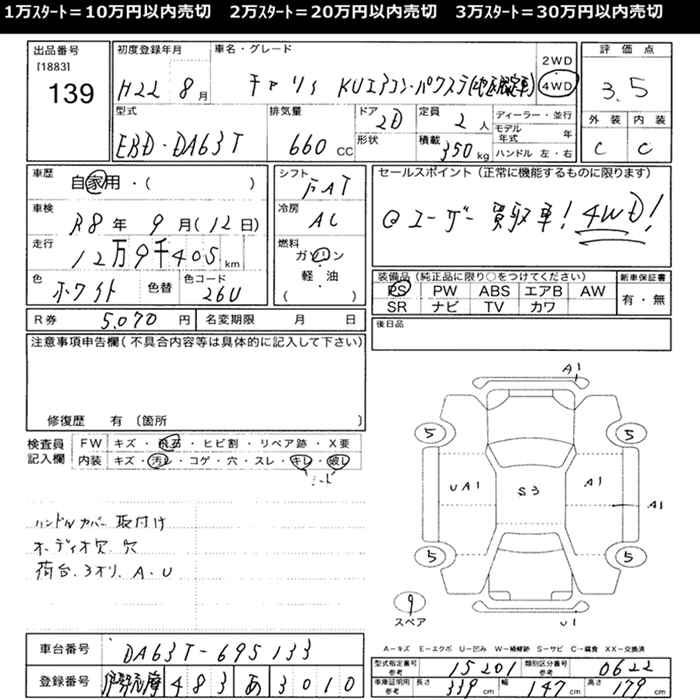 1万ｽﾀｰﾄ＝10万円以内売切　2万ｽﾀｰﾄ＝20万円以内売切　3万ｽﾀｰﾄ＝30万円以内売切
出品番号
[1883]
139
初度登録年月
H22 8月
車名・グレード
キャリィ KUエアコン・パワステ
2WD
4WD
評価点
3.5
外装 内装
C C
型式
EBD-DA63T
排気量
660 CC
ドア
2D
形状
定員
2人
積載
350 kg
ディーラー・並行
モデル年式 年
ハンドル 左・右
車歴
自家用・( )
車検
R8年 9月(12日)
走行
12万9千405 km
色
ホワイト
色替
色コード
26U
シフト
FAT
冷房
AC
燃料
ガソリン
軽・油
( )
セールスポイント (正常に機能するものに限ります)
@ユーザー買取車! 4WD!
装備品 (純正品に限り○をつけてください)
PS PW ABS エアB AW
SR ナビ TV カワ
新車保証書
有・無
R券 5,070円
名変期限 月 日
後日品
注意事項申告欄(不具合内容等は具体的に記入して下さい)
修復歴 有 〔箇所
検査員記入欄
FW キズ・飛石・ヒビ割・リペア跡・X要
内装 キズ・汚レ・コゲ・穴・スレ・キレ・破レ
シート
ハンドルカバー取付け
オーディオ欠.穴
荷台.3オリ.A.U
A1
5
5
UA1
S3
A1
A1
5
5
9
スペア
U1
A-キズ E-エクボ U-凹み W-補修跡 S-サビ C-腐食 XX-交換済
車台番号
DA63T-695133
登録番号
483 あ 3010
型式指定番号
参考
15201
類別区分番号
参考
0622
車庫証明用
参考
長さ 339 cm
幅 147 cm
高さ 179 cm